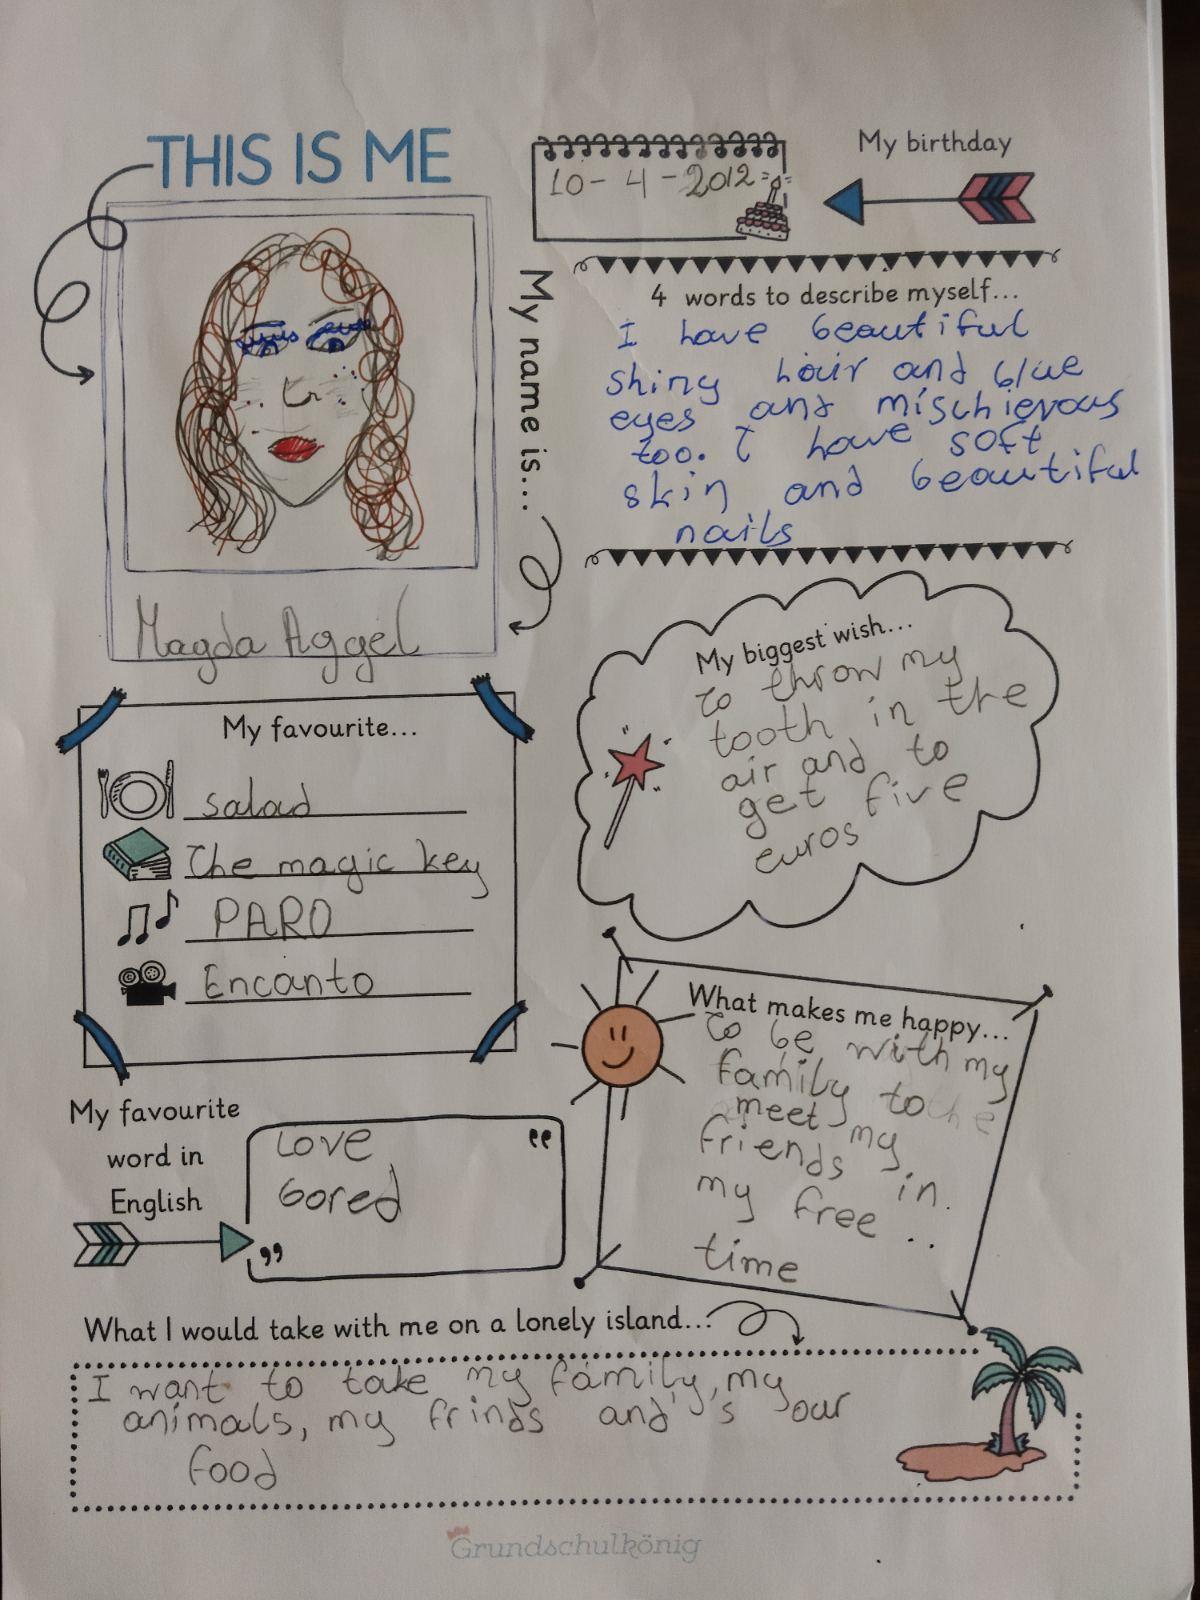 THIS IS ME
10 - 4 - 2012
My birthday
My name is...
Magda Aggel
4 words to describe myself...
I have beautiful
shiny hair and blue
eyes and mischievous
too. I have soft
skin and beautiful
nails
My biggest wish...
to throw my
tooth in the
air and to
get five
euros
My favourite...
salad
The magic key
PARO
Encanto
What makes me happy...
to be with my
family to
meet my
friends in
my free ..
time
My favourite
word in
English
Love
bored
What I would take with me on a lonely island...
I want to take my family, my
animals, my frinds and 's our
food
Grundschulkönig